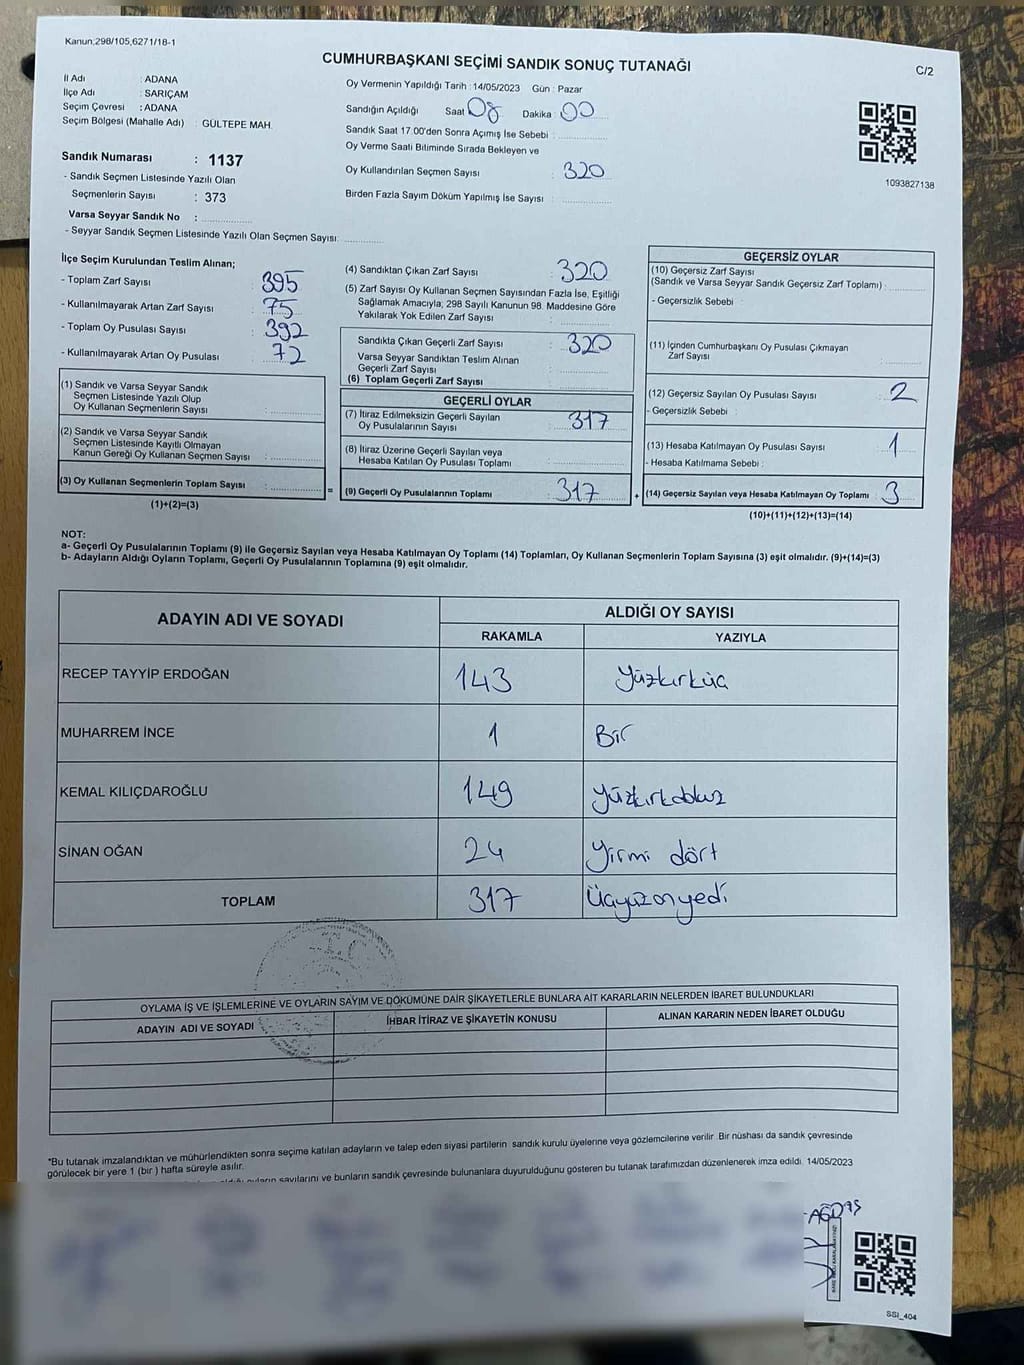 Kanun:298/105,6271/18-1
CUMHURBAŞKANI SEÇİMİ SANDIK SONUÇ TUTANAĞI
C/2
İl Adı : ADANA
İlçe Adı : SARIÇAM
Seçim Çevresi : ADANA
Seçim Bölgesi (Mahalle Adı) : GÜLTEPE MAH.
Oy Vermenin Yapıldığı Tarih : 14/05/2023 Gün : Pazar
Sandığın Açıldığı Saat 08 Dakika : 00
Sandık Saat 17.00'den Sonra Açımış İse Sebebi :
Oy Verme Saati Bitiminde Sırada Bekleyen ve
Oy Kullandırılan Seçmen Sayısı : 320
Birden Fazla Sayım Döküm Yapılmış İse Sayısı :
1093827138
Sandık Numarası : 1137
- Sandık Seçmen Listesinde Yazılı Olan
Seçmenlerin Sayısı : 373
Varsa Seyyar Sandık No :
- Seyyar Sandık Seçmen Listesinde Yazılı Olan Seçmen Sayısı:
İlçe Seçim Kurulundan Teslim Alınan;
- Toplam Zarf Sayısı : 395
- Kullanılmayarak Artan Zarf Sayısı : 75
- Toplam Oy Pusulası Sayısı : 392
- Kullanılmayarak Artan Oy Pusulası : 72
(1) Sandık ve Varsa Seyyar Sandık
Seçmen Listesinde Yazılı Olup
Oy Kullanan Seçmenlerin Sayısı :
(2) Sandık ve Varsa Seyyar Sandık
Seçmen Listesinde Kayıtlı Olmayan
Kanun Gereği Oy Kullanan Seçmen Sayısı :
(3) Oy Kullanan Seçmenlerin Toplam Sayısı :
(1)+(2)=(3)
(4) Sandıktan Çıkan Zarf Sayısı : 320
(5) Zarf Sayısı Oy Kullanan Seçmen Sayısından Fazla İse, Eşitliği
Sağlamak Amacıyla; 298 Sayılı Kanunun 98. Maddesine Göre
Yakılarak Yok Edilen Zarf Sayısı :
Sandıkta Çıkan Geçerli Zarf Sayısı : 320
Varsa Seyyar Sandıktan Teslim Alınan
Geçerli Zarf Sayısı :
(6) Toplam Geçerli Zarf Sayısı
GEÇERLİ OYLAR
(7) İtiraz Edilmeksizin Geçerli Sayılan
Oy Pusulalarının Sayısı : 317
(8) İtiraz Üzerine Geçerli Sayılan veya
Hesaba Katılan Oy Pusulası Toplamı :
= (9) Geçerli Oy Pusulalarının Toplamı : 317 +
GEÇERSİZ OYLAR
(10) Geçersiz Zarf Sayısı
(Sandık ve Varsa Seyyar Sandık Geçersiz Zarf Toplamı) :
- Geçersizlik Sebebi :
(11) İçinden Cumhurbaşkanı Oy Pusulası Çıkmayan
Zarf Sayısı :
(12) Geçersiz Sayılan Oy Pusulası Sayısı : 2
- Geçersizlik Sebebi :
(13) Hesaba Katılmayan Oy Pusulası Sayısı : 1
- Hesaba Katılmama Sebebi :
(14) Geçersiz Sayılan veya Hesaba Katılmayan Oy Toplamı : 3
(10)+(11)+(12)+(13)=(14)
NOT:
a- Geçerli Oy Pusulalarının Toplamı (9) ile Geçersiz Sayılan veya Hesaba Katılmayan Oy Toplamı (14) Toplamları, Oy Kullanan Seçmenlerin Toplam Sayısına (3) eşit olmalıdır. (9)+(14)=(3)
b- Adayların Aldığı Oyların Toplamı, Geçerli Oy Pusulalarının Toplamına (9) eşit olmalıdır.
ADAYIN ADI VE SOYADI
ALDIĞI OY SAYISI
RAKAMLA YAZIYLA
RECEP TAYYİP ERDOĞAN 143 yüzkırküç
MUHARREM İNCE 1 Bir
KEMAL KILIÇDAROĞLU 149 yüzkırkdokuz
SİNAN OĞAN 24 yirmi dört
TOPLAM 317 üçyüzonyedi
T.C
OYLAMA İŞ VE İŞLEMLERİNE VE OYLARIN SAYIM VE DÖKÜMÜNE DAİR ŞİKAYETLERLE BUNLARA AİT KARARLARIN NELERDEN İBARET BULUNDUKLARI
ADAYIN ADI VE SOYADI İHBAR İTİRAZ VE ŞİKAYETİN KONUSU ALINAN KARARIN NEDEN İBARET OLDUĞU
*Bu tutanak imzalandıktan ve mühürlendikten sonra seçime katılan adayların ve talep eden siyasi partilerin sandık kurulu üyelerine veya gözlemcilerine verilir. Bir nüshası da sandık çevresinde
görülecek bir yere 1 (bir ) hafta süreyle asılır.
sayılarını ve bunların sandık çevresinde bulunanlara duyurulduğunu gösteren bu tutanak tarafımızdan düzenlenerek imza edildi. 14/05/2023
SSI_404